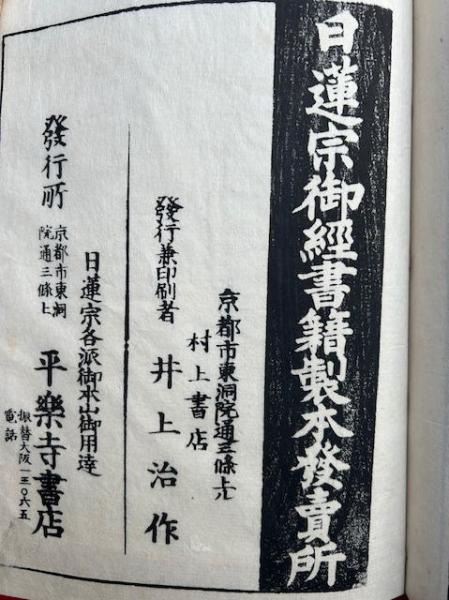 日蓮宗御經書籍製本發賣所
京都市東洞院通三條上ル
村上書店
發行兼印刷者 井上治作
日蓮宗各派御本山御用達
發行所 京都市東洞院通三條上ル 平樂寺書店
電話
振替大阪一三〇六五